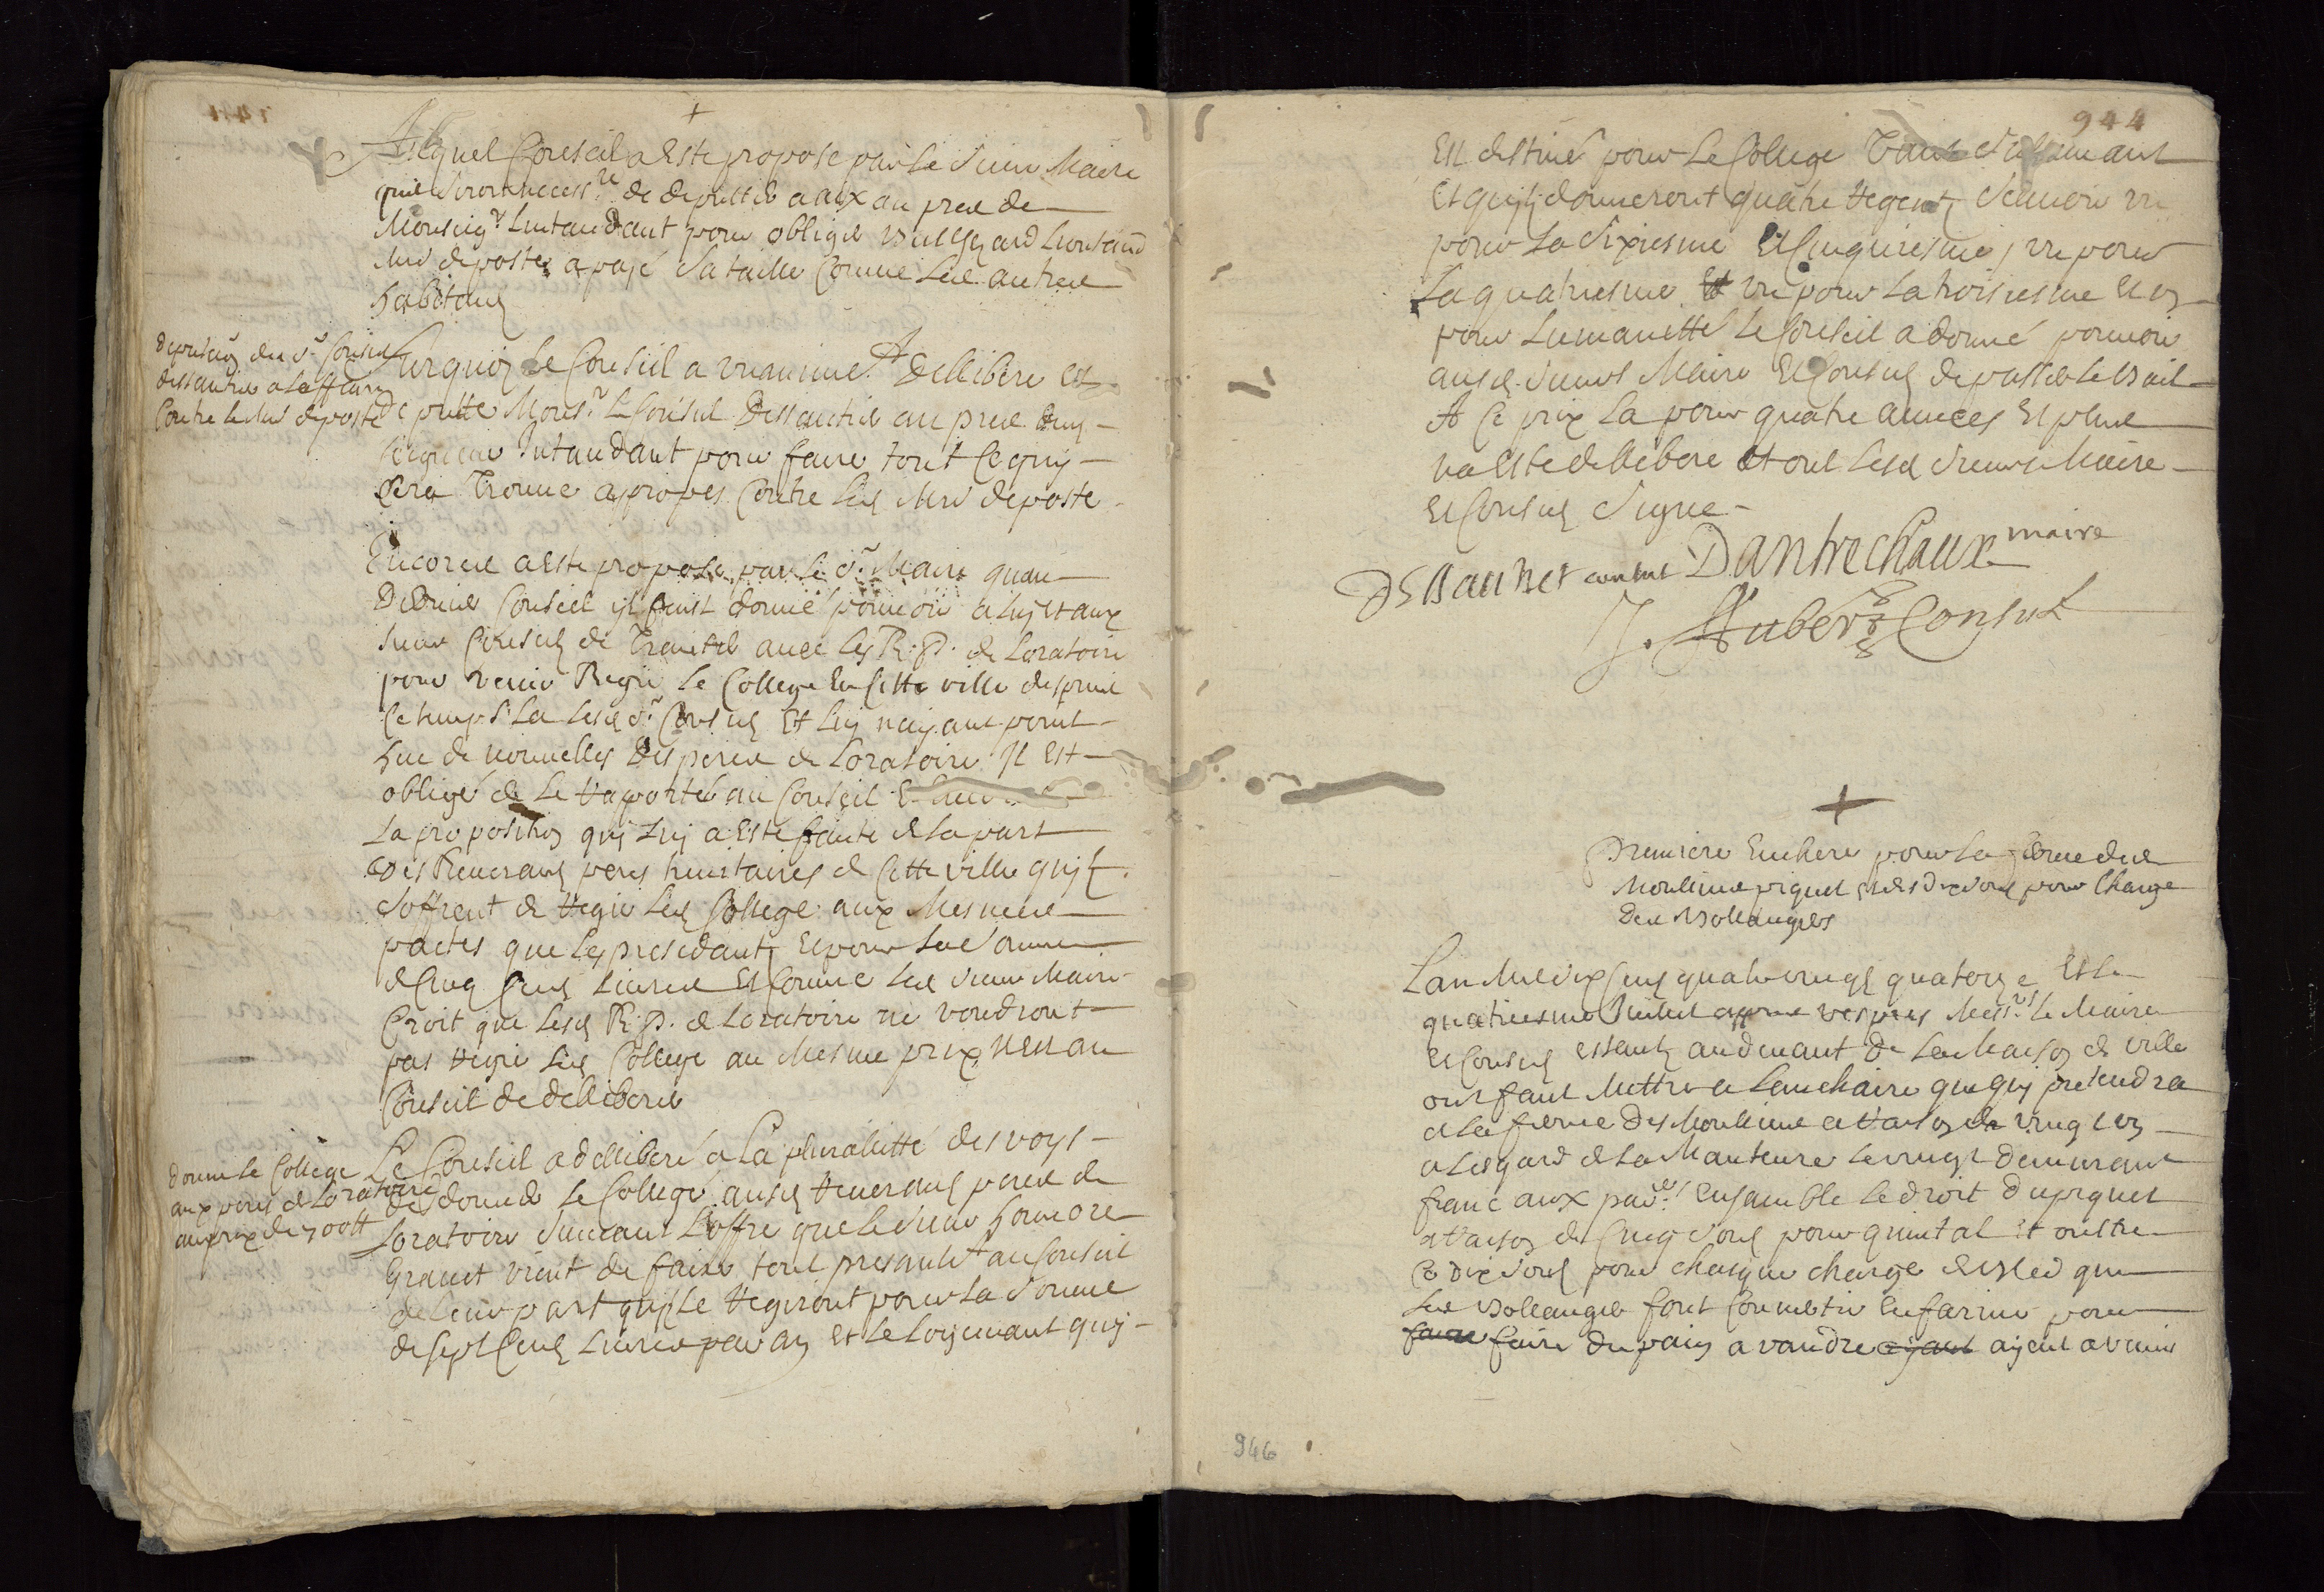 Auquel Conseil a este propose par le sieur Maire
quil seroit necess.re de deputter a aix au pres de
Monseig.r Lintandant pour obliger
de poste a payé sa taille Comme les autres
habitans
deputaon du s.r Consul
dessautier a laffaire
Contre le de poste
Surquoy le Conseil a unanime.t dellibere et
depute Mons.r le Consul Dessautier au pres
seigneur Intandant pour faire tout ce quy
sera trouve a propos Contre led de poste
Encores a este propose par le s.r Maire quau
dernier Conseil il feust donné pouvoir a luy et aux
sieurs Consuls de traitter avec les R. P. de Loratoire
pour venir Regir le College en Cette ville despuis
ce temps la lesd s.rs Consuls et luy nayant point
heu de nouvelles des peres de Loratoire Il est
obligé de le raporter au Conseil
la proposition quy luy a este faitte de la part
des Reverans peres trinitaires de Cette ville quy
soffrent de regir led College aux Mesmes
pactes que les presedants et pour la somme
de Cinq Cens livres et Comme led sieur Maire
Croit que lesd R. P. de Loratoire ne voudront
pas regir led College au Mesme prix
Conseil de delliberer
donne le College
aux peres de Loratoire
au prix de 700 tt
Le Conseil a delliberé a la pluralitté des voys
de donner le College ausd Reverans peres de
Loratoire suivant Loffre que le sieur honnoré
Granet vient de faire tout presantem.t au Conseil
de leur part quy le regiront pour la somme
de sept Cens livres par an et le logemant quy
944
Est destiné pour le College tant sulemant
et quils donneront quatre regents scavoir un
pour la sixiesme et Cinquiesme, un pour
la quatriesme et un pour la troisiesme et un
pour lumanitté le Conseil a donné pouvoir
ausd sieurs Maire et Consuls de passer le bail
A Ce prix la pour quatre annees et plus
na este dellibere et ont lesd sieurs Maire
et Consuls signe
DeBaunet consul Dantrechaux maire
J. Aubert Consul
Premiere Enchere pour la ferme des
Moullins piquet et dix sols pour Charge
des Bollangers
Lan Mil six Cens quatre vingt quatorze et le
quatriesme Juilet apres vespres Mess.rs le Maire
et Consuls estants au devant de la Maison de ville
ont fait Mettre a Lenchaire que quy pretendra
a la ferme des Moullins a raison de vingt un
a lesgard de la Mouteure le vingt demurant
franc aux Ensamble le droit du piquet
a raison de Cinq sols pour quintal et oultre
ce dix sols pour chasque charge de bled que
les Bollangers font Convertir en farine pour
faire faire du pain a vandre ayant ayent a venir
946